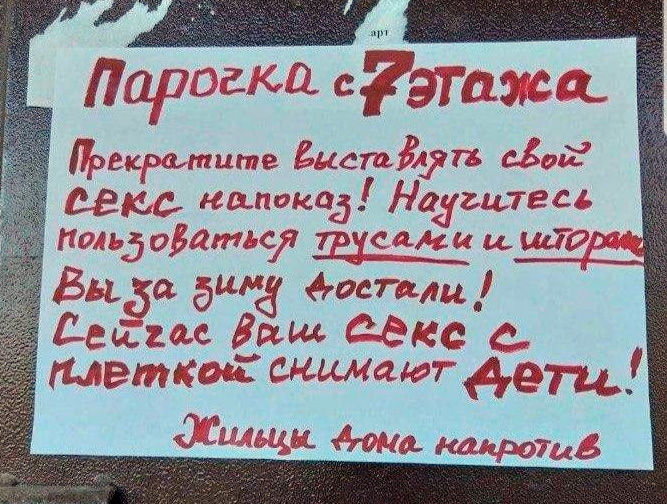 арт
Парочка с 7 этажа
Прекратите выставлять свой
секс напоказ! Научитесь
пользоваться трусами и шторами
Вы за зиму достали!
Сейчас ваш секс с
плеткой снимают дети!
Жильцы дома напротив